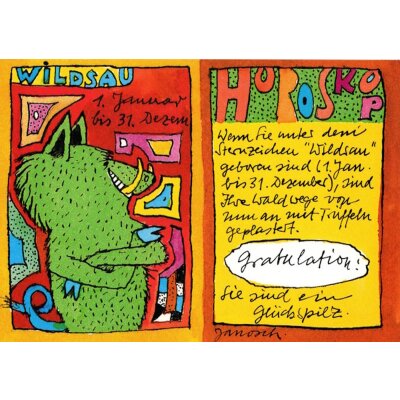 WILDSAU
1. Januar
bis 31. Dezem
HOROSKOP
Wenn Sie unter dem
Sternzeichen "Wildsau"
geboren sind (1. Jan.
bis 31. Dezember), sind
Ihre Waldwege von
nun an mit Trüffeln
geplastert.
Gratulation!
Sie sind ein
Glückspilz.
Janosch